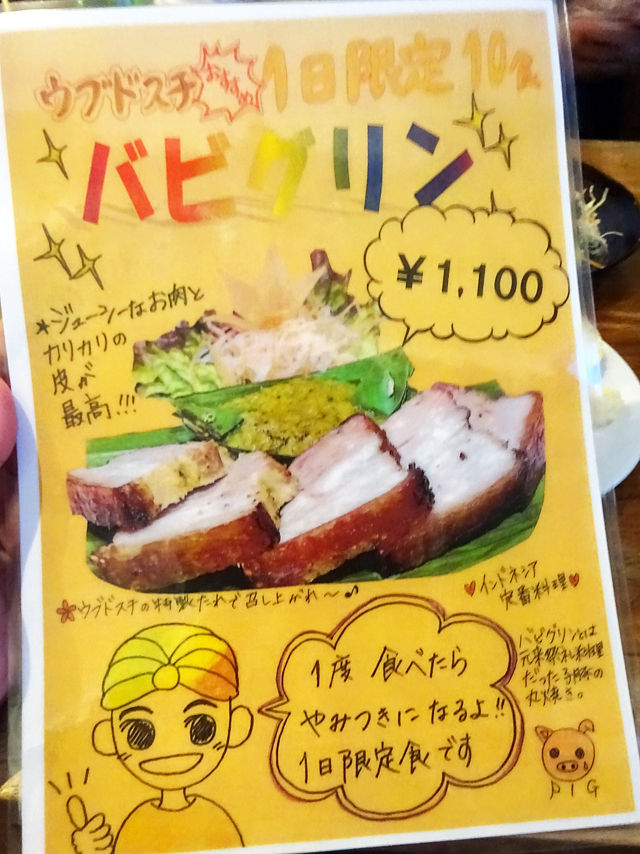 ウブドスチ おすすめ 1日限定10食
バビグリン
¥1,100
*ジューシーなお肉と
カリカリの
皮が
最高!!!
ウブドスチの特製たれで召し上がれ〜♪
インドネシア
定番料理
バビグリンとは
元来祭礼料理
だった子豚の
丸焼き。
1度 食べたら
やみつきになるよ!!
1日限定食です
PIG